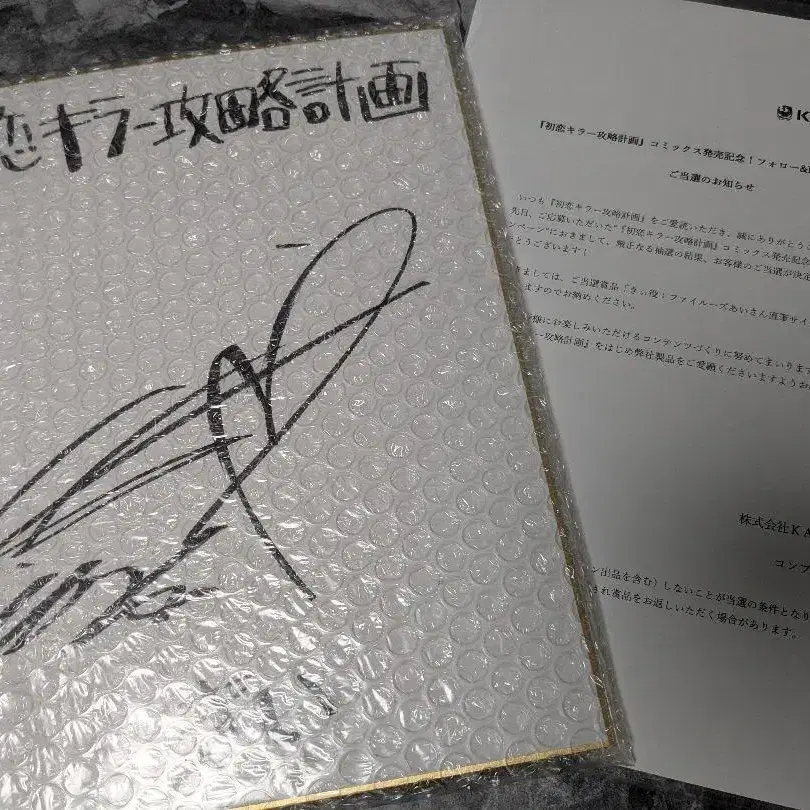 恋キラー攻略計画
K
『初恋キラー攻略計画』コミックス発売記念！フォロー&
ご当選のお知らせ
いつも『初恋キラー攻略計画』をご愛読いただき、誠にありがとうご
先日、ご応募いただいた"『初恋キラー攻略計画』コミックス発売記念
ンペーン"におきまして、厳正なる抽選の結果、お客様のご当選が決定
とうございます！
きましては、ご当選賞品「きぃ役：ファイルーズあいさん直筆サイ
ますのでお納めください。
様にお楽しみいただけるコンテンツづくりに努めてまいります
ラー攻略計画』をはじめ弊社製品をご愛顧くださいますようお
株式会社KA
コンプ
ン出品を含む）しないことが当選の条件となり
され賞品をお返しいただく場合があります。